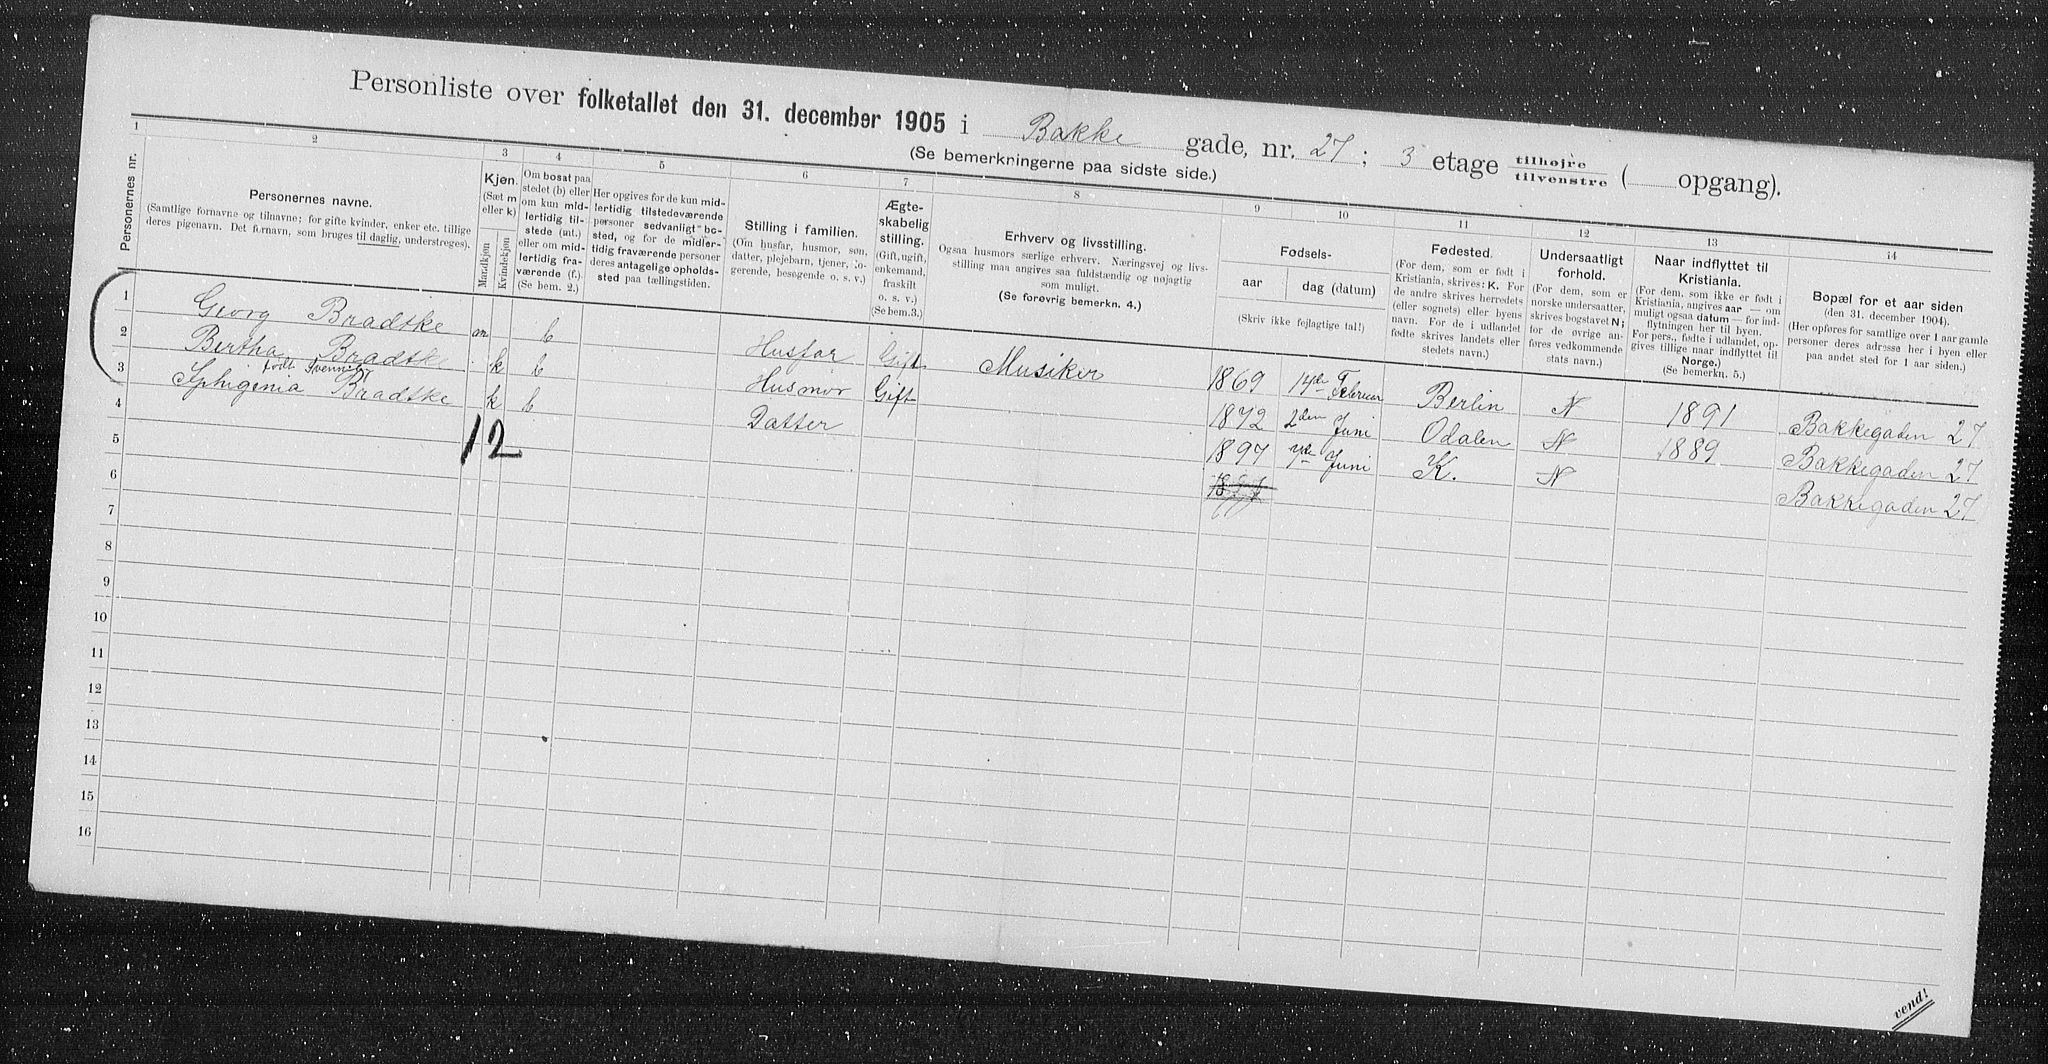 Personliste over folketallet den 31. december 1905 i Bakke gade, nr. 27 ; 3 etage tilhøjre tilvenstre ( opgang).
(Se bemerkningerne paa sidste side.)
1 2 3 4 5 6 7 8 9 10 11 12 13 14
Personernes nr.
Personernes navne.
(Samtlige fornavne og tilnavne; for gifte kvinder, enker etc. tillige
deres pigenavn. Det fornavn, som bruges til daglig, understreges).
Kjøn.
(Sæt m
eller k)
Mandkjøn
Kvindekjøn
Om bosat paa
stedet (b) eller
om kun mid-
lertidig til-
stede (mt.)
eller om mid-
lertidig fra-
værende (f.)
(Se bem. 2.)
Her opgives for de kun mid-
lertidig tilstedeværende
personer sedvanligt bo-
sted, og for de midler-
tidig fraværende personer
deres antagelige opholds-
sted paa tællingstiden.
Stilling i familien.
(Om husfar, husmor, søn,
datter, plejebarn, tjener, lo-
gerende, besøgende o. s. v.)
Ægte-
skabelig
stilling.
(Gift, ugift,
enkemand,
fraskilt
o. s. v.)
(Se bem.3.)
Erhverv og livsstilling.
Ogsaa husmors særlige erhverv. Næringsvej og livs-
stilling maa angives saa fuldstændig og nøjagtig
som muligt.
(Se forøvrig bemerkn. 4.)
Fødsels-
aar dag (datum)
(Skriv ikke fejlagtige tal!)
Fødested.
(For dem, som er født i
Kristiania, skrives: K. For
de andre skrives herredets
(eller sognets) eller byens
navn. For de i udlandet
fødte skrives landets eller
stedets navn.)
Undersaatligt
forhold.
(For dem, som er
norske undersaatter,
skrives bogstavet N;
for de øvrige an-
føres vedkommende
stats navn.)
Naar indflyttet til
Kristiania.
(For dem, som ikke er født i
Kristiania, angives aar — om
muligt ogsaa datum — for ind-
flytningen her til byen.
For pers., fødte i udlandet, op-
gives tillige naar indflyttet til
Norge.)
(Se bemerkn. 5.)
Bopæl for et aar siden
(den 31. december 1904).
(Her opføres for samtlige over 1 aar gamle
personer deres adresse her i byen eller
paa andet sted for 1 aar siden.)
1 Georg Bradtke m b Husfar Gift Musiker 1869 14de Februar Berlin N 1891 Bakkegaden 27
2 Bertha Bradtke k b Husmor Gift 1872 2den Juni Odalen N 1889 Bakkegaden 27
født
3 Iphigenia Bradtke k b Datter 1897 7de Juni K. N Bakkegaden 27
4
12
5
6
7
8
9
10
11
12
13
14
15
16
vend!